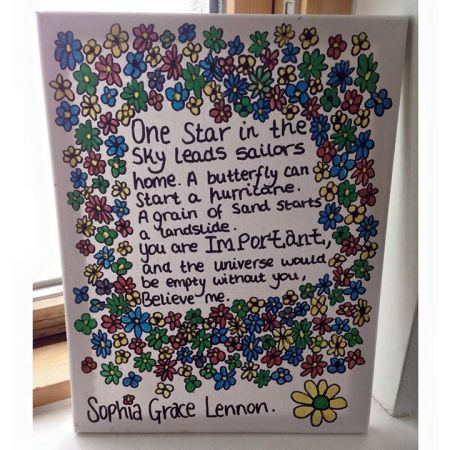 One Star in the
Sky Leads sailors
home. A butterfly can
Start a hurricane.
A grain of Sand Starts
a landslide.
you are ImPortant,
and the universe would
be empty without you,
Believe me.
Sophia Grace Lennon.